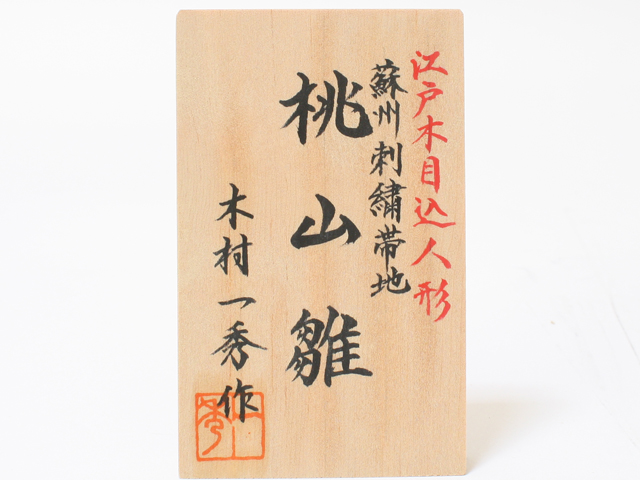 江戸木目込人形
蘇州刺繍帯地
桃山雛
木村一秀作
一秀